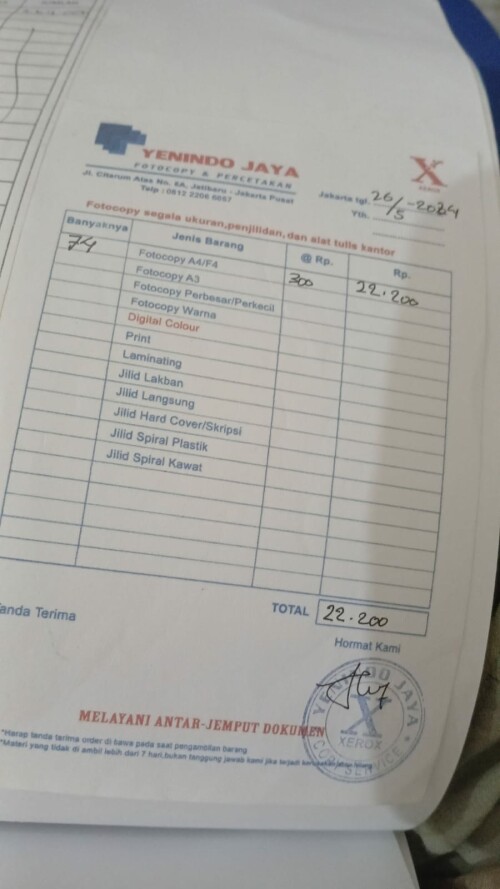 YENINDO JAYA
FOTOCOPY & PERCETAKAN
Jl. Citarum Atas No. 6A, Jatibaru - Jakarta Pusat
Telp : 0812 2206 6657
X
XEROX
Jakarta tgl. 26/5-2024
Yth.
Fotocopy segala ukuran,penjilidan,dan alat tulis kantor
Banyaknya Jenis Barang @ Rp. Rp.
74 Fotocopy A4/F4 300 22.200
Fotocopy A3
Fotocopy Perbesar/Perkecil
Fotocopy Warna
Digital Colour
Print
Laminating
Jilid Lakban
Jilid Langsung
Jilid Hard Cover/Skripsi
Jilid Spiral Plastik
Jilid Spiral Kawat
TOTAL 22.200
anda Terima
Hormat Kami
YENINDO JAYA
X
XEROX
COPY SERVICE
MELAYANI ANTAR-JEMPUT DOKUMEN
*Harap tanda tarima order di bawa pada saat pengambilan barang
*Materi yang tidak di ambil lebih dari 7 hari,bukan tanggung jawab kami jika terjadi